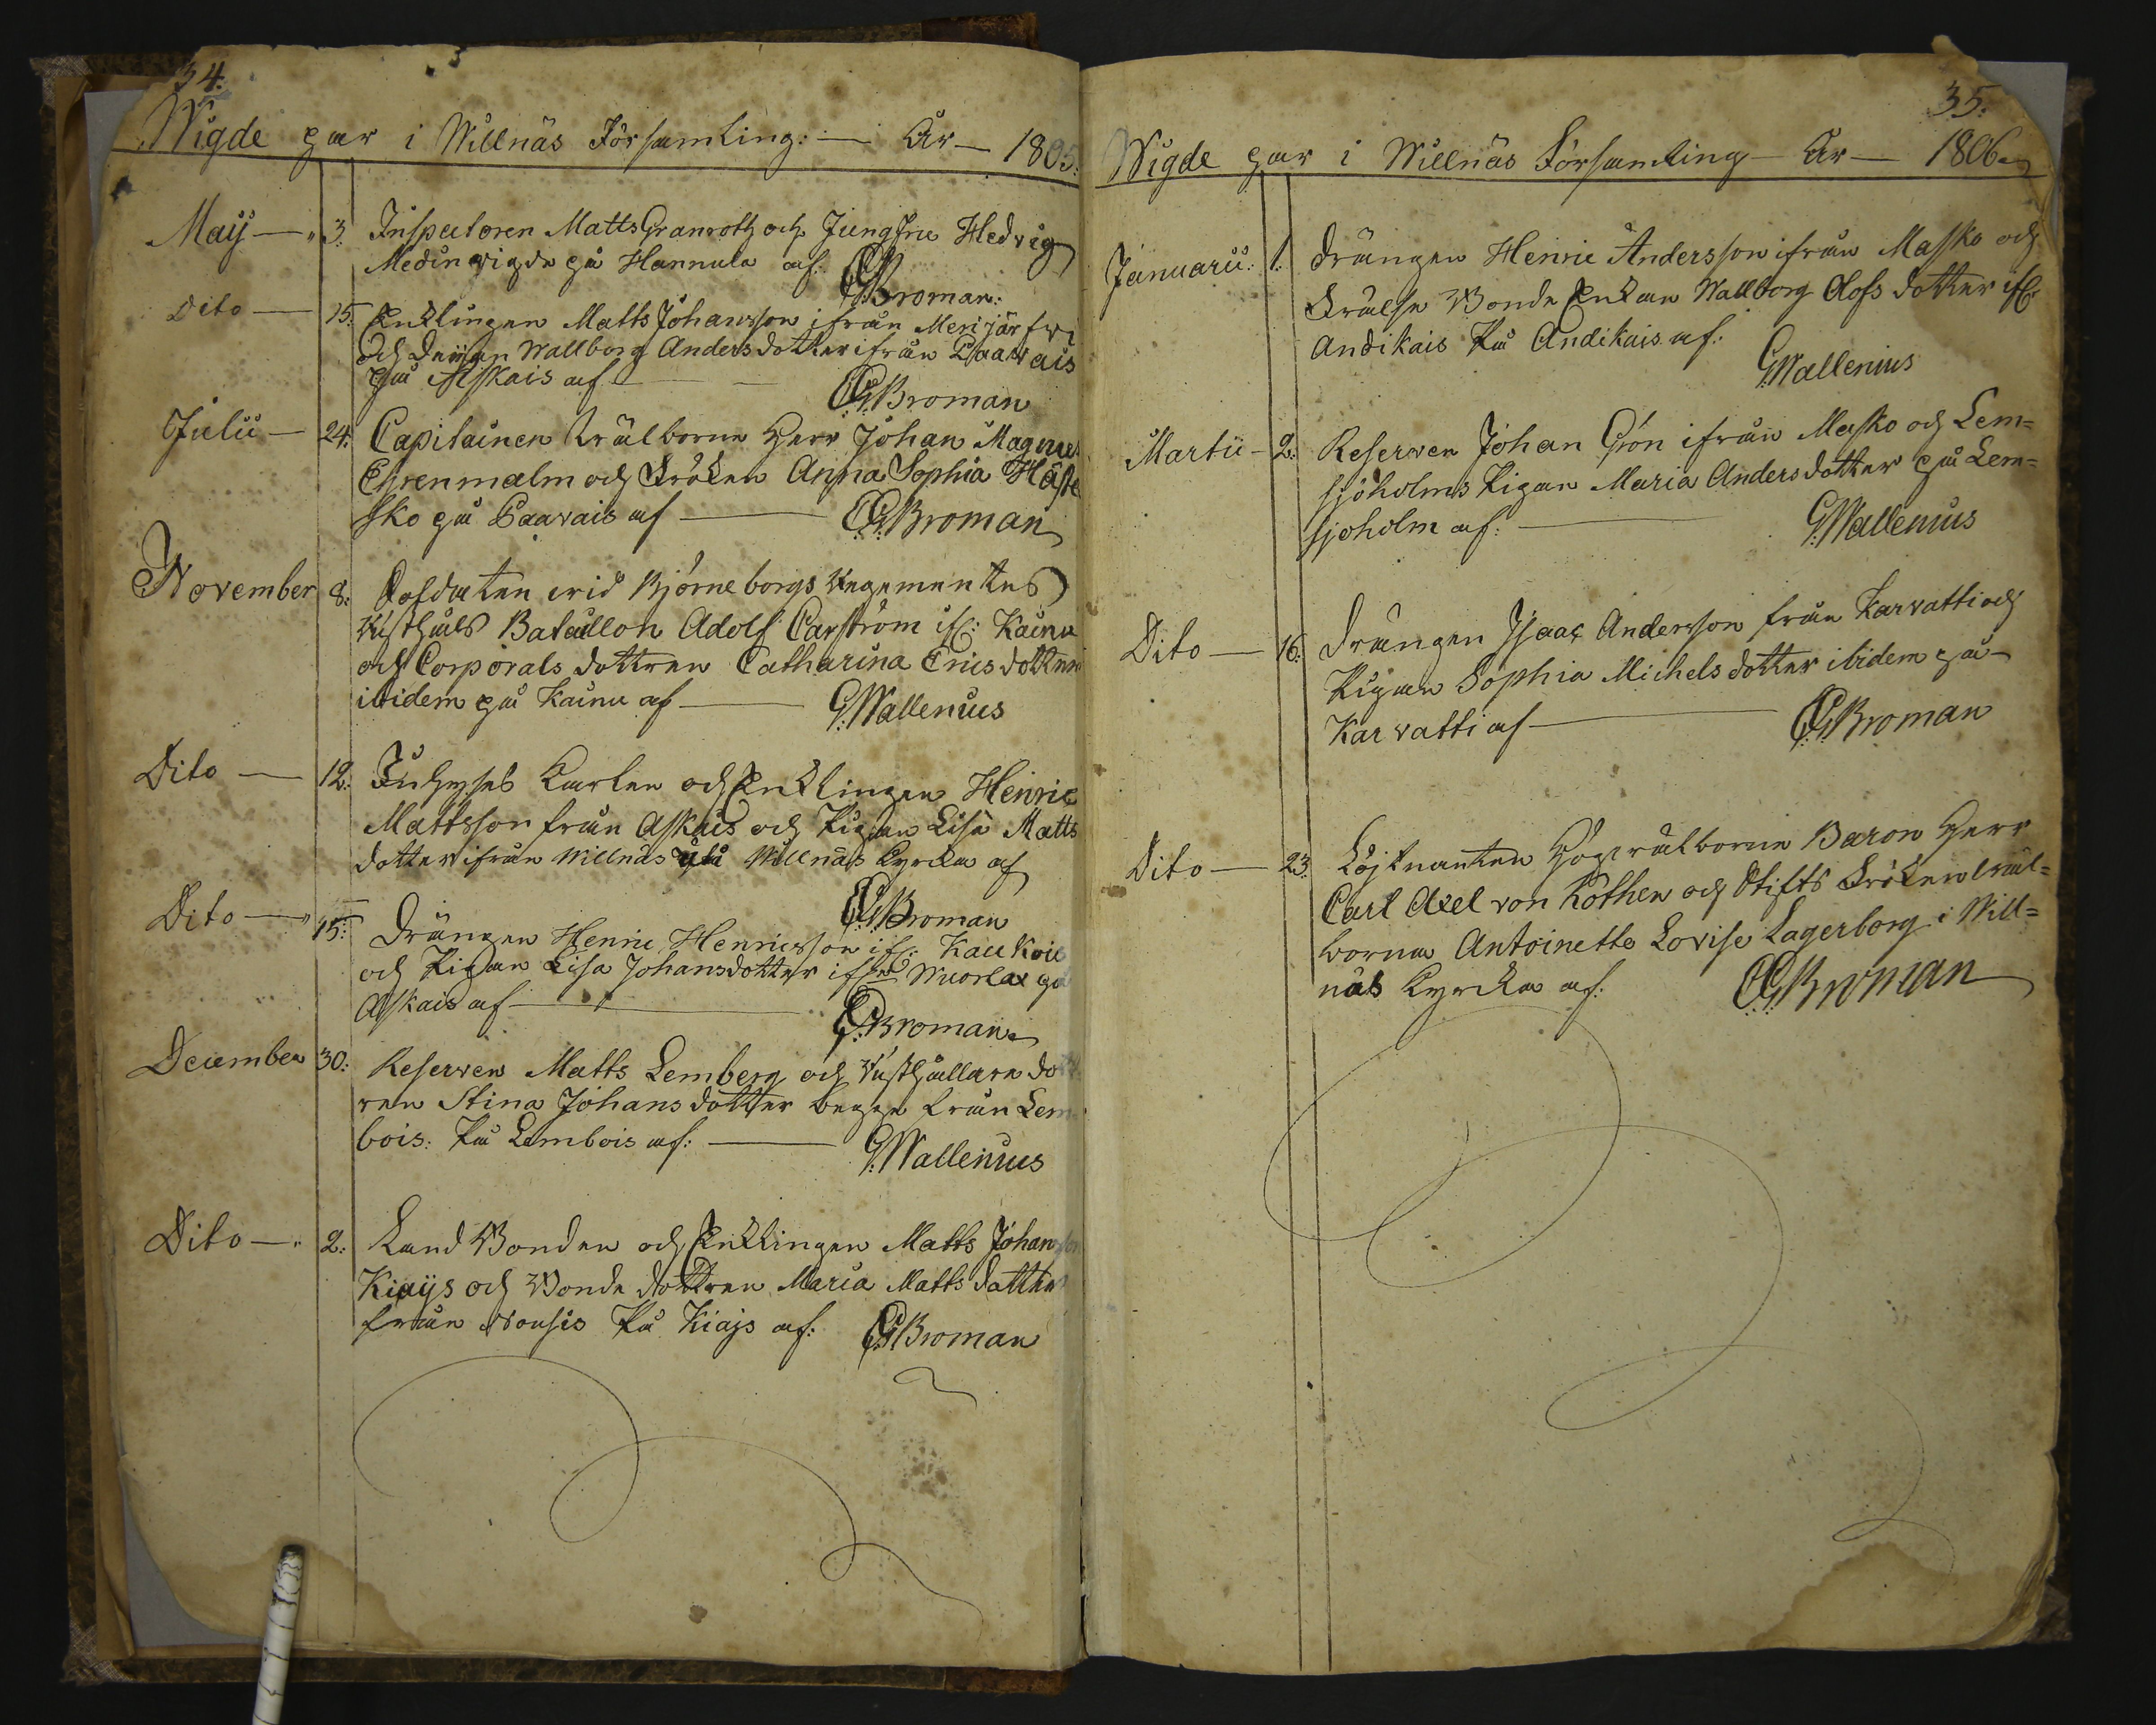 34.
Wigde par i Willnäs Församling: — År — 1805.
May — 3. Inspectoren Matts Granroth och Jungfru Hedvig
Medin wigde på Hannula af:
CGBroman:
Dito — 15. Enklingen Matts Johansson ifrån Merijärfwi
och Deijan Wallborg Andersdotter ifrån Paavais
på Askais af — CGBroman
Julii — 24. Capitainen wälborne Herr Johan Magnus
Ehrenmalm och Fröken Anna Sophia Häste
sko på Paavais af — CGBroman
November 8: Soldaten wid Björneborgs Regementes
Rusthålls Bataillon Adolf Carström ifr: Kainu
och Corporals dottren Catharina Ericsdotter
ibidem på Kainu af — G:Wallenius
Dito — 12: Inhyses Karlen och Enklingen Henric
Mattsson från Askais och Pigan Lisa Matts
dotter ifrån Willnäs på Willnäs Kyrcka af
CGBroman
Dito — 15: Drängen Henric Henricsson ifr: Kaukois
och Pigan Lisa Johansdotter ifrn Wuorlax på
Askais af — CGBroman
December 30: Reserven Matts Lemberg och Rusthållare dott
ren Stina Johansdotter begge från Lem
bois: På Lembois af: — G:Wallenius
Dito — 2: Land Bonden och Enklingen Matts Johansson
Kiaijs och Bonde dottren Maria Matts dotter
från Nousis På Kiajs af: CGBroman
35:
Wigde par i Willnäs Församling — År — 1806
Januarii: 1. Drängen Henric Andersson ifrån Masko och
Frälse Bonde Enkan Wallborg Olofs dotter ifr:
Andikais På Andikais af:
G:Wallenius
Martii — 2: Reserven Johan Grön ifrån Masko och Lem=
sjöholms Pigan Maria Andersdotter på Lem=
sjoholm af: — G:Wallenius
Dito — 16: Drängen Isaac Andersson från Karvatti och
Pigan Sophia Michelsdotter ibidem på
Karvatti af — CGBroman
Dito — 23: Löjtnanten Högwälborne Baron Herr
Carl Axel von Köthen och Stifts Fröken wäl=
borna Antoinette Lovise Lagerborg i Will=
näs Kyrcka af: CGBroman